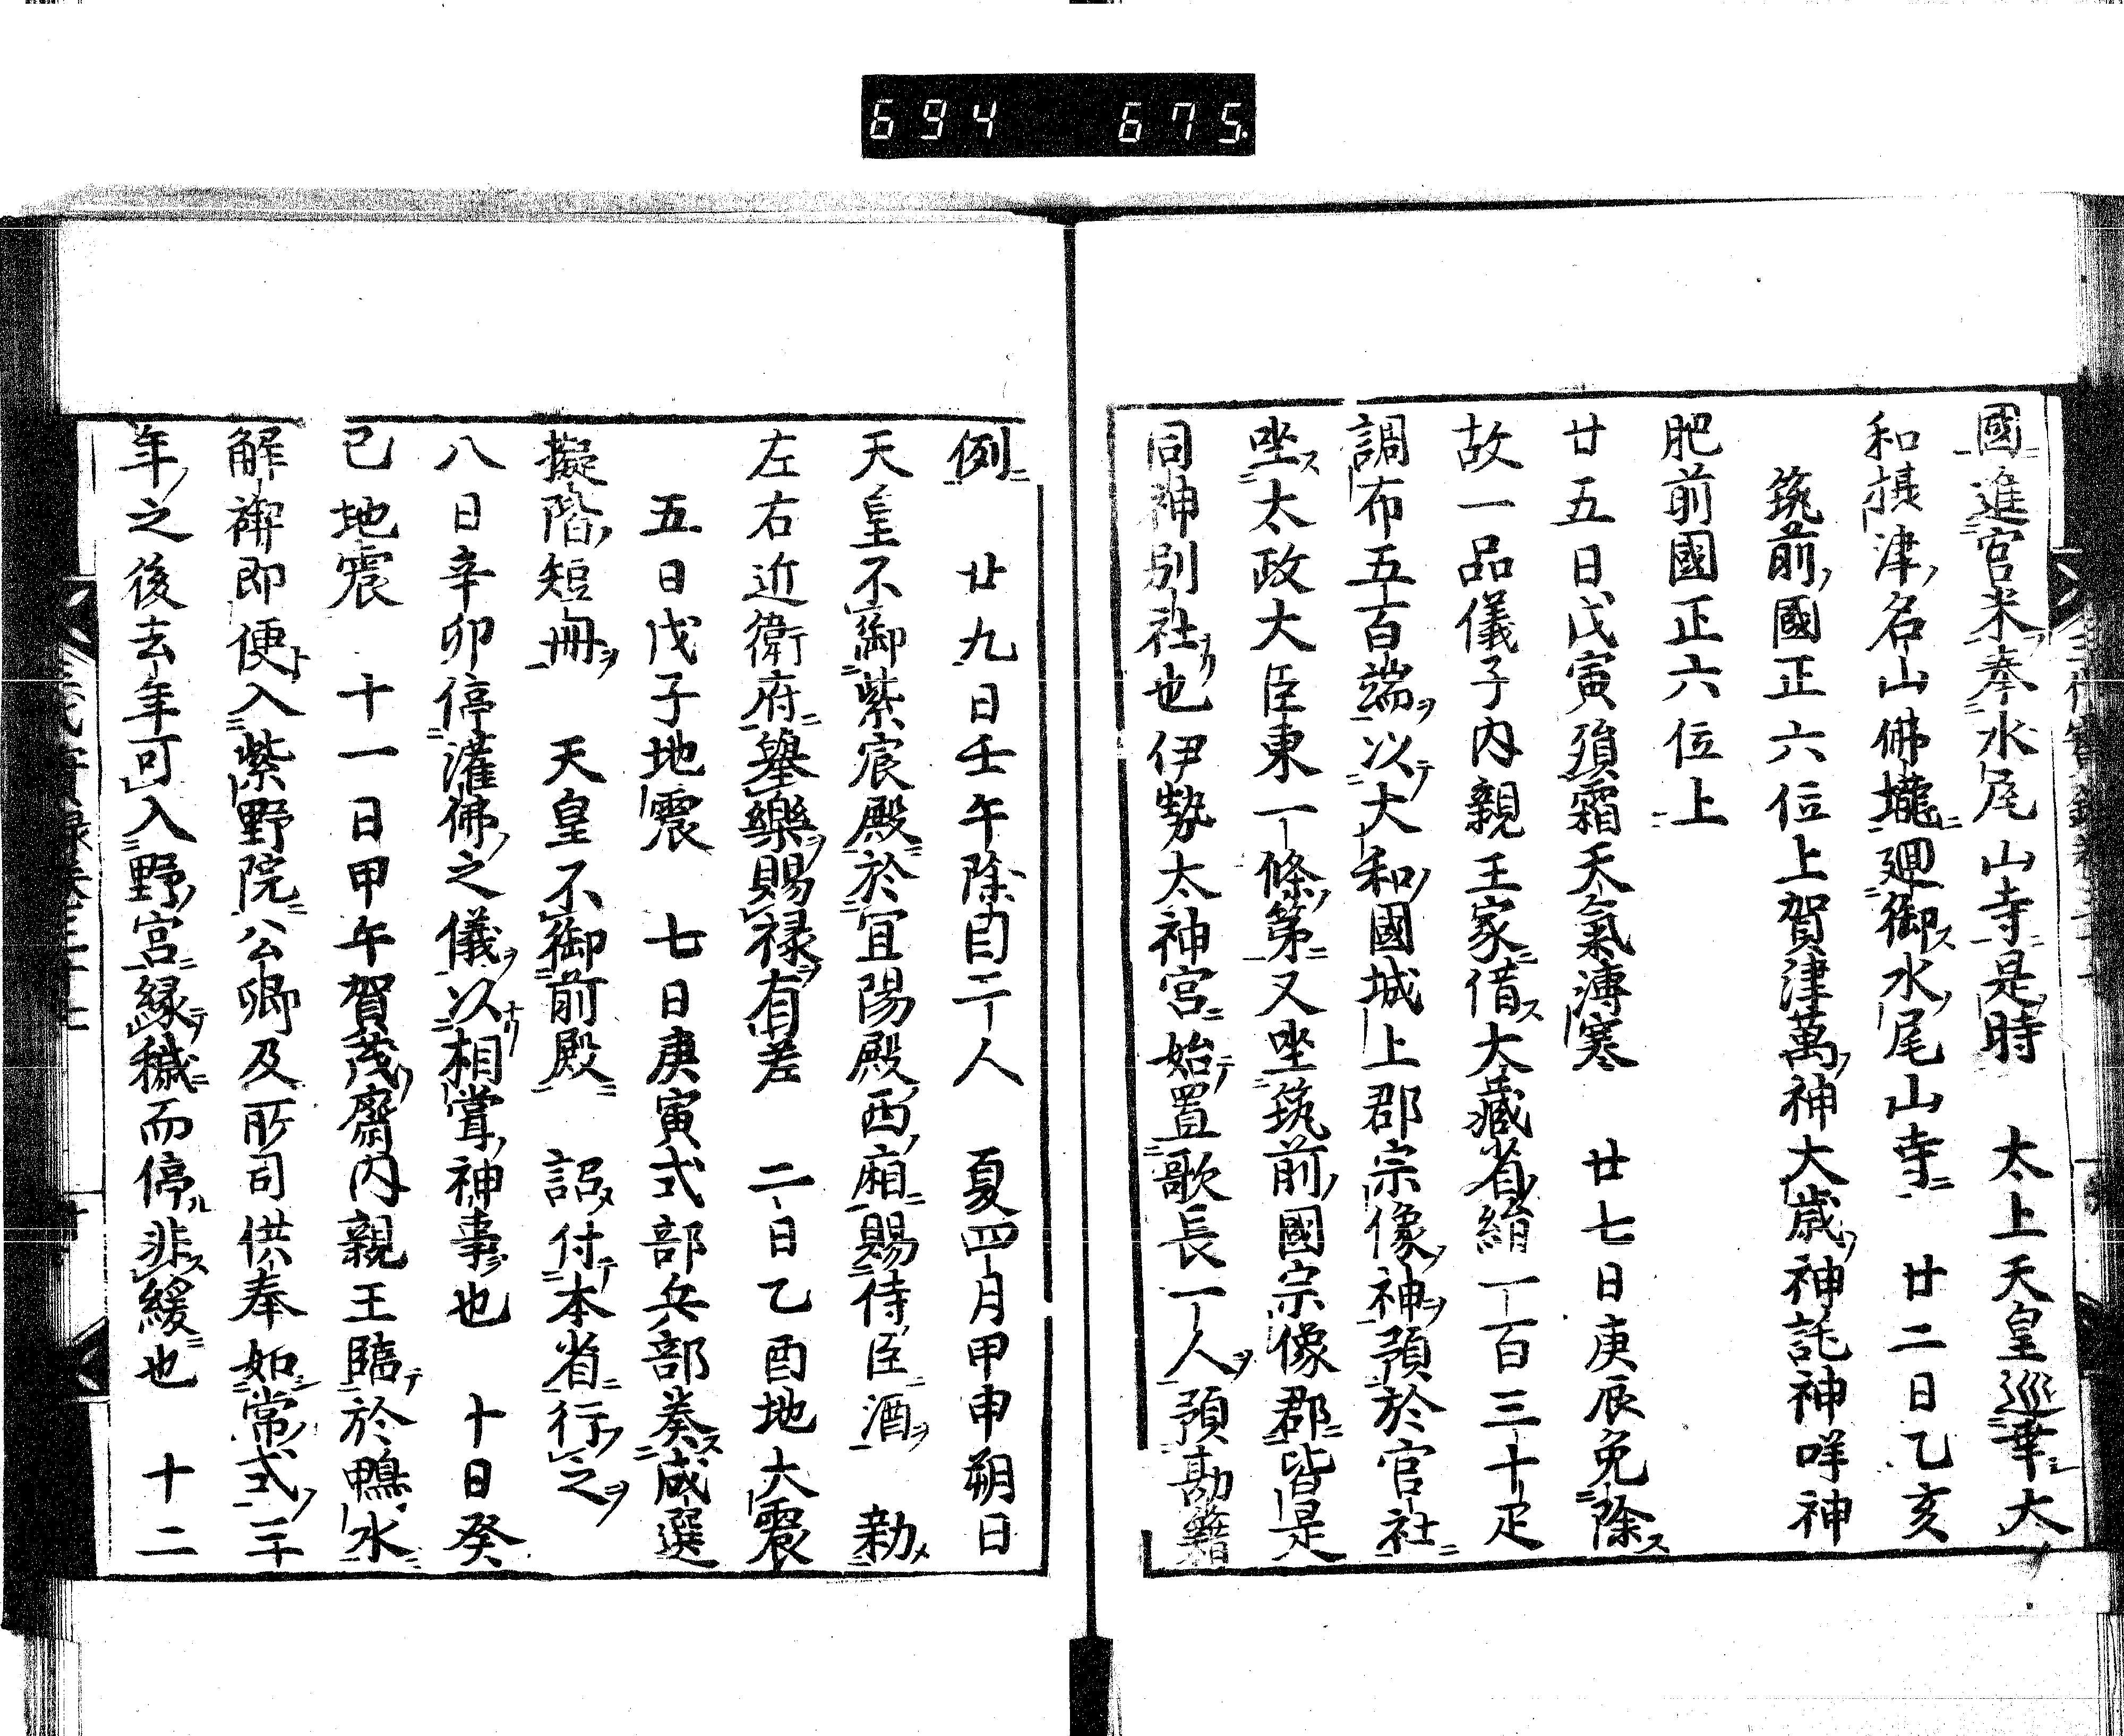 694 675
國進官米奉水尾山寺是時 太上天皇巡幸大
和摂津名山佛壠廻御水尾山寺 廿二日乙亥
筑前國正六位上賀津萬神大歳神託神咩神
肥前國正六位上
廿五日戊寅殞霜天氣溥寒 廿七日庚辰免除
故一品儀子内親王家借大藏省絹一百三十疋
調布五百端以大和國城上郡宗像神預於官社
坐太政大臣東一條第又坐筑前國宗像郡皆是
同神別社也伊勢太神宮始置歌長一人預勘籍
例 廿九日壬午除目二人 夏四月甲申朔日
天皇不御紫宸殿於宜陽殿西廂賜侍臣酒 勅
左右近衛府擧樂賜禄有差 二日乙酉地大震
五日戊子地震 七日庚寅式部兵部奏成選
擬階短冊 天皇不御前殿 詔付本省行之
八日辛卯停灌佛之儀以相甞神事也 十日癸
巳地震 十一日甲午賀茂齋内親王臨於鴨水
解禊即便入紫野院公卿及所司供奉如常式三
年之後去年可入野宮縁穢而停非緩也 十二